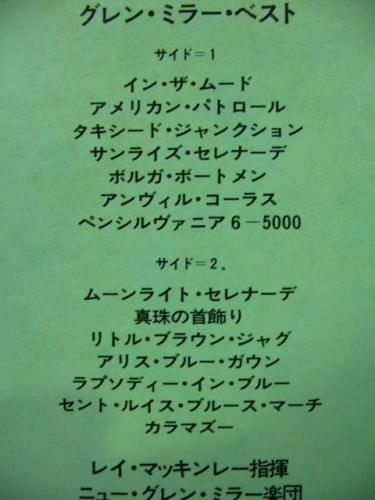 グレン・ミラー・ベスト
サイド=1
イン・ザ・ムード
アメリカン・パトロール
タキシード・ジャンクション
サンライズ・セレナーデ
ボルガ・ボートメン
アンヴィル・コーラス
ペンシルヴァニア6-5000
サイド=2.
ムーンライト・セレナーデ
真珠の首飾り
リトル・ブラウン・ジャグ
アリス・ブルー・ガウン
ラプソディー・イン・ブルー
セント・ルイス・ブルース・マーチ
カラマズー
レイ・マッキンレー指揮
ニュー・グレン・ミラー楽団